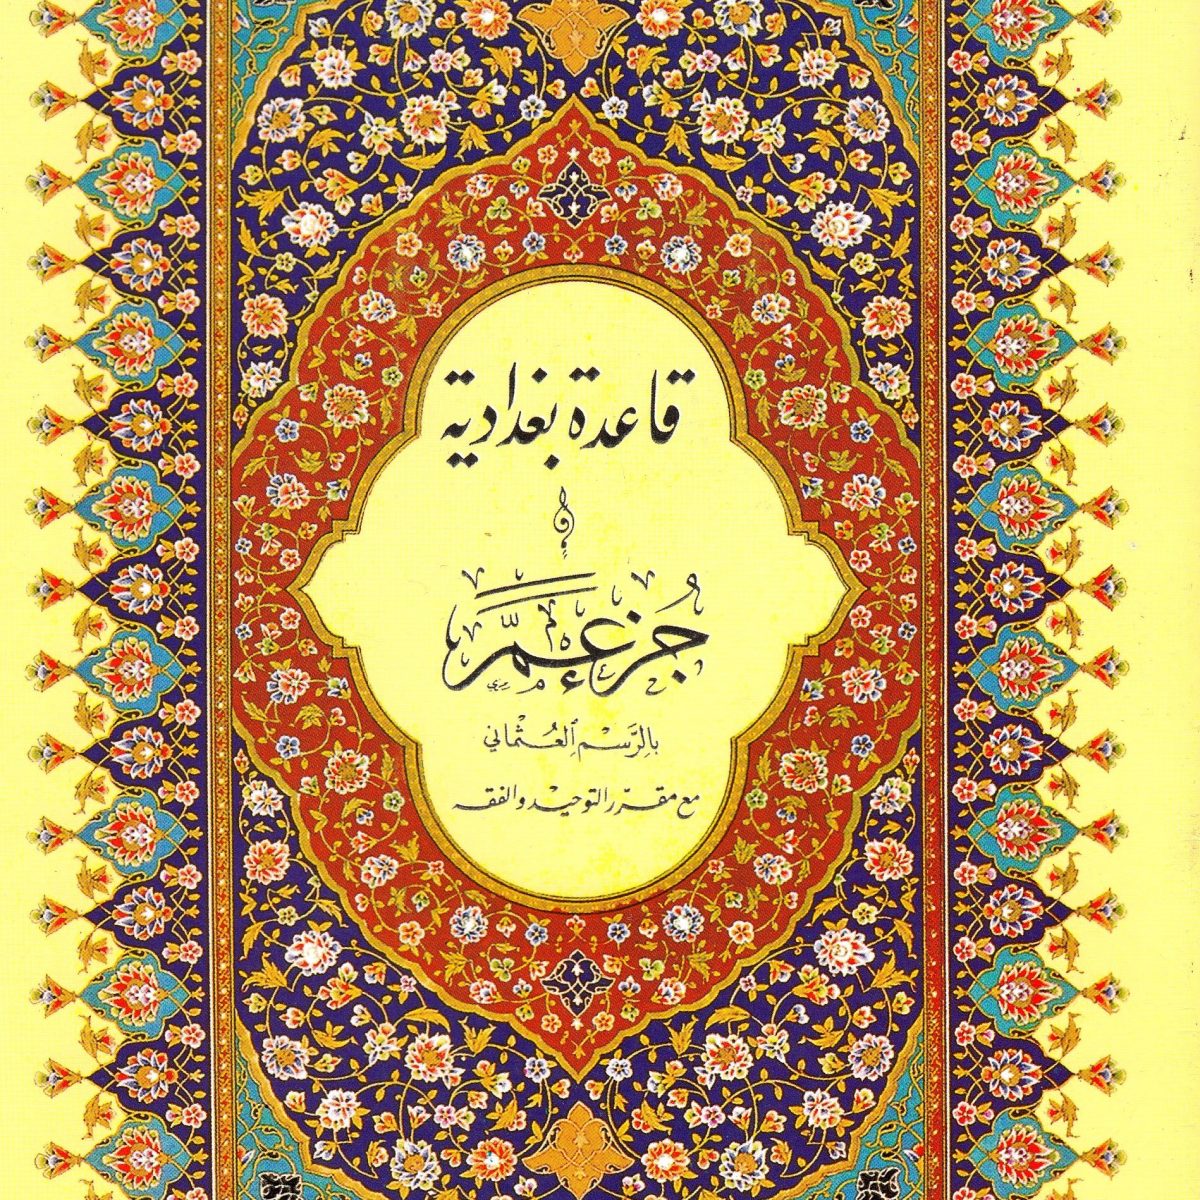 قاعدة بغدادية
و
جُزء عَمَّ
بِالرَّسْمِ العُثْمَانِي
مع مقرّر التوحيْد والفقه